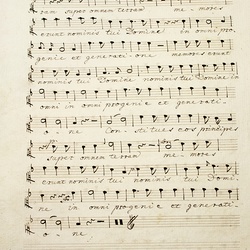 eram super omnem terram me- mores
erunt nominis tui Domine in omni pro
genie et generati- one memores erunt
nominis tui Domine nominis tui Domine in
omni in omni progenie et generati-
o- ne Con- sti tues eos principes
super omnem terram me- mores
erunt nominis tui nominis tui Domi-
ne in omni progenie et generati
o- ne